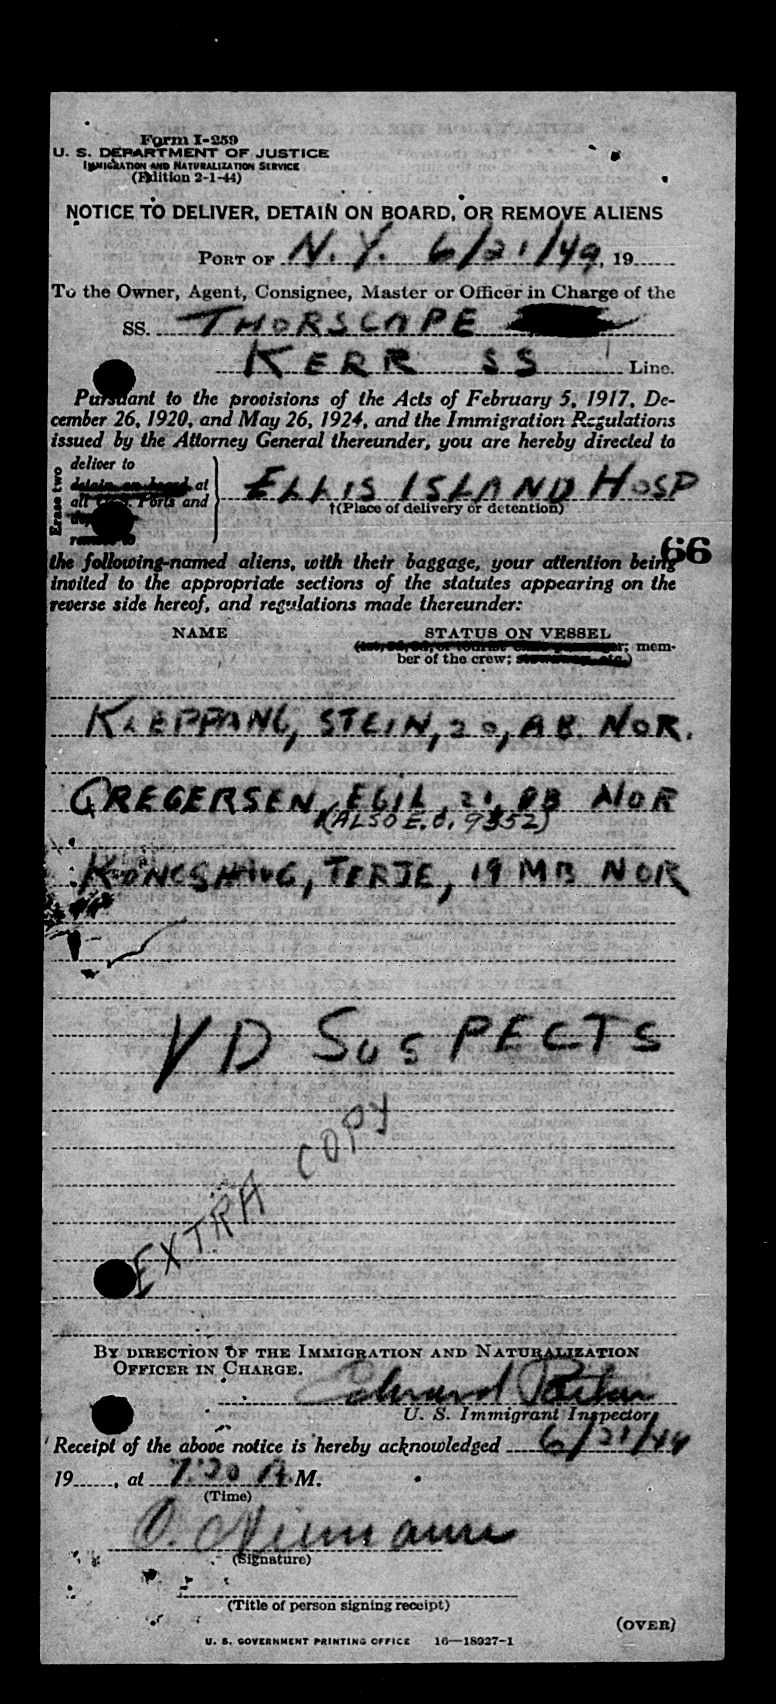 Form I-259
U. S. DEPARTMENT OF JUSTICE
IMMIGRATION AND NATURALIZATION SERVICE
(Edition 2-1-44)
NOTICE TO DELIVER, DETAIN ON BOARD, OR REMOVE ALIENS
PORT OF N.Y. 6/21/49, 19
To the Owner, Agent, Consignee, Master or Officer in Charge of the
SS. THORSCAPE
KERR SS Line.
Pursuant to the provisions of the Acts of February 5, 1917, De-
cember 26, 1920, and May 26, 1924, and the Immigration Regulations
issued by the Attorney General thereunder, you are hereby directed to
Erase two
deliver to
detain on board at
all U.S. Ports and
remove to
ELLIS ISLAND HOSP
†(Place of delivery or detention)
66
the following-named aliens, with their baggage, your attention being
invited to the appropriate sections of the statutes appearing on the
reverse side hereof, and regulations made thereunder:
NAME STATUS ON VESSEL
(1st, 2d, 3d, or tourist class passenger; mem-
ber of the crew; stowaway, etc.)
KLEPPANG, STEIN, 20, AB. NOR.
GREGERSEN, EGIL, 21, AB NOR
(ALSO E.O. 9352)
KONGSHAUG, TERJE, 19 MB NOR
VD SUSPECTS
EXTRA COPY
BY DIRECTION OF THE IMMIGRATION AND NATURALIZATION
OFFICER IN CHARGE.
Edward
U. S. Immigrant Inspector.
Receipt of the above notice is hereby acknowledged 6/21/49
19, at 7:30 A.M.
(Time)
O. Niemann
(Signature)
(Title of person signing receipt)
(OVER)
U. S. GOVERNMENT PRINTING OFFICE 16—18927-1